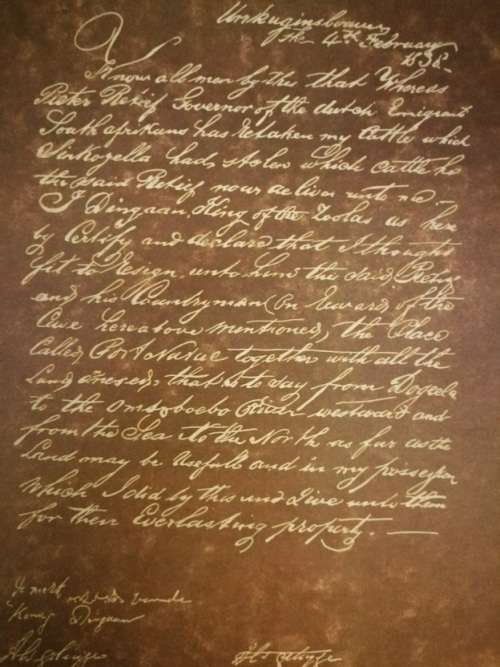 Unkuginsloave
the 4th February
1838
Know all men by this that Whereas
Pieter Retief Governor of the dutch Emigrant
South afrikans has Retaken my Cattle which
Sinkozella had stolen which cattle he
the said Retief now deliver unto me.
I Dingaan, King of the Zoolas as here
by Certify and declare that I thought
fit to Resign unto him the said Retief
and his Countryman (on Reward of the
Case hereabove mentioned) the Place
Called Port Natal together with all the
Land annexed, that is to say from Dogeela
to the Omsoboebo River westward and
from the Sea to the North as far as the
Land may be Usefull and in my possession
Which I did by this and Give unto them
for their Everlasting property. —
De merk
Koning Dingaan